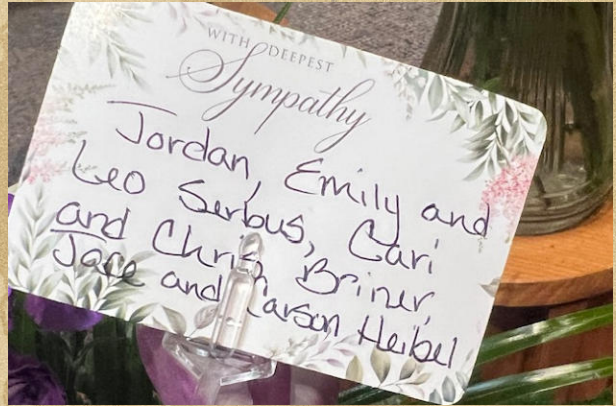 WITH DEEPEST
Sympathy
Jordan, Emily and
Leo Serbus, Cari
and Chris Briner,
Jace and Carson Heibel